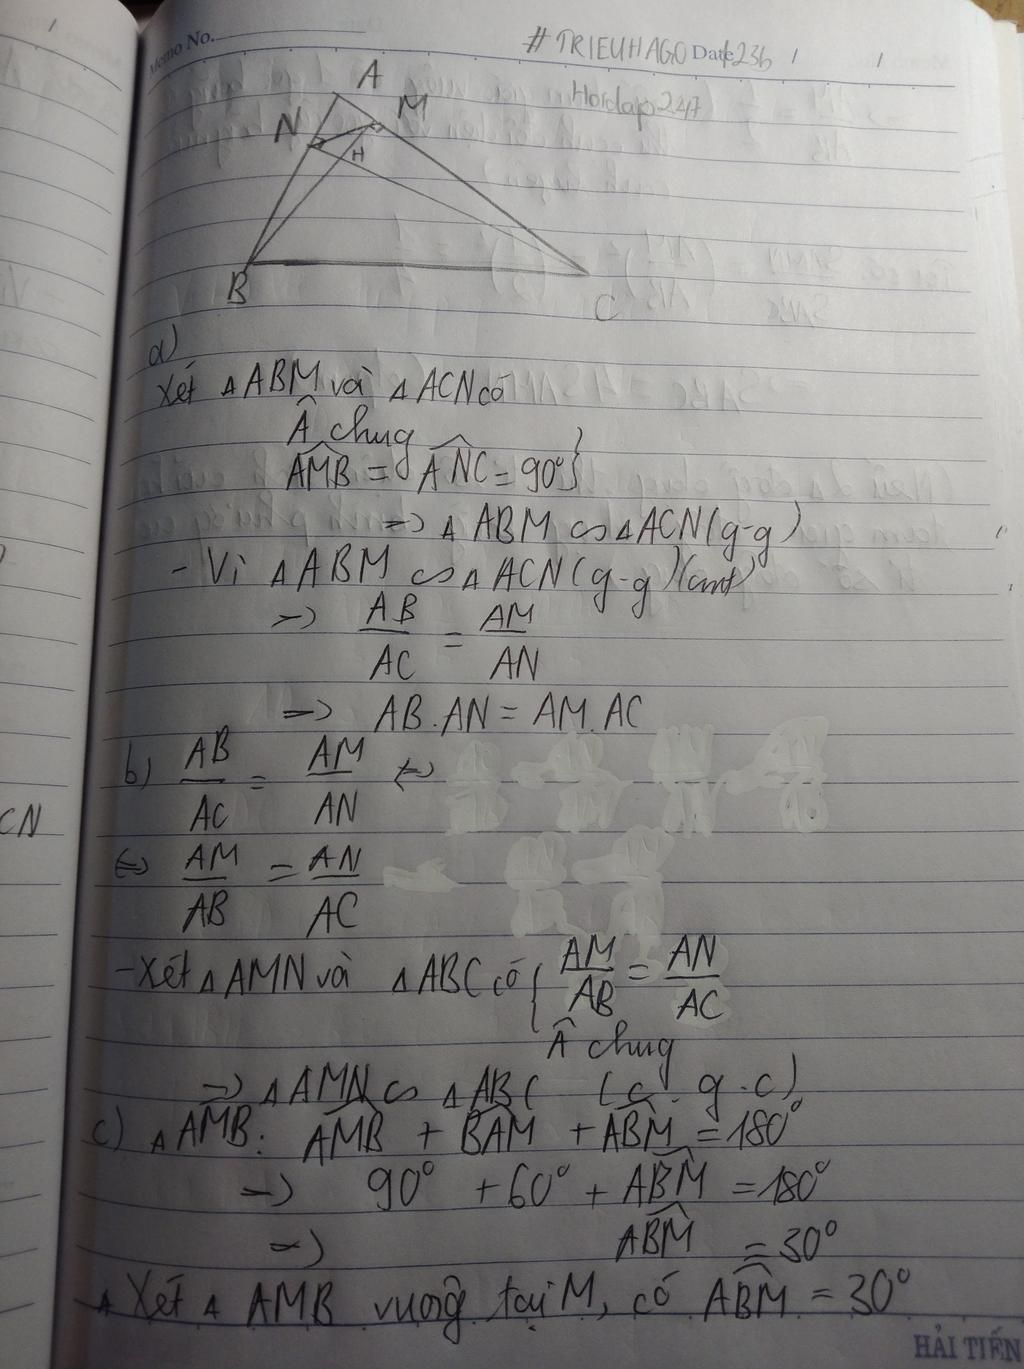 Memo No.
# TRIEUHAGO Date 1236 / /
Hoidap247
A
N M
H
B
C
a)
Xét △ABM và △ACN có
Â chug
AMB = ANC = 90°}
=> △ABM ∽ △ACN (g-g)
- Vì △ABM ∽ △ACN (g-g) (cmt)
=> AB/AC = AM/AN
=> AB.AN = AM.AC
b) AB/AC = AM/AN <=>
<=> AM/AB = AN/AC
CN
- Xét △AMN và △ABC có { AM/AB = AN/AC
Â chug
=> △AMN ∽ △ABC (c.g.c)
c) △AMB: AMB + BAM + ABM = 180°
=> 90° + 60° + ABM = 180°
=> ABM = 30°
Xét △ AMB vuông tại M, có ABM = 30°
HẢI TIẾN